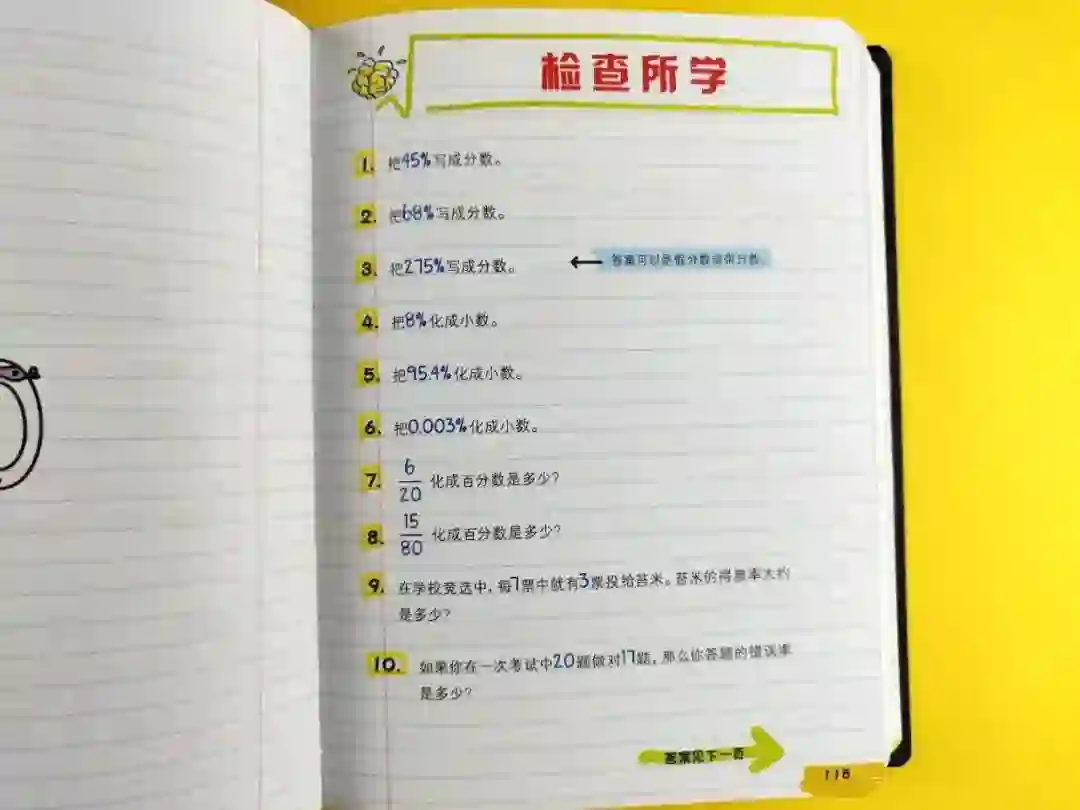 检查所学
1. 把45%写成分数。
2. 把68%写成分数。
3. 把275%写成分数。 ← 答案可以是假分数或带分数。
4. 把8%化成小数。
5. 把95.4%化成小数。
6. 把0.003%化成小数。
7. 6/20 化成百分数是多少?
8. 15/80 化成百分数是多少?
9. 在学校竞选中, 每7票中就有3票投给苔米。苔米的得票率大约
是多少?
10. 如果你在一次考试中20题做对17题, 那么你答题的错误率
是多少?
答案见下一页
118